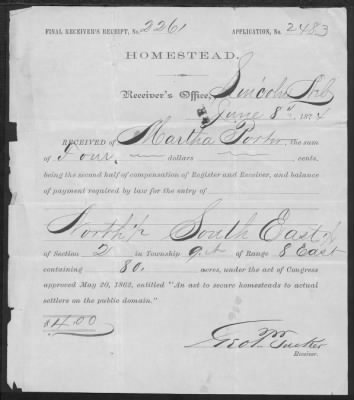 FINAL RECEIVER'S RECEIPT, No. 2261 APPLICATION, No. 2483
HOMESTEAD.
Receiver's Office, Lincoln Neb
June 8" 1874
RECEIVED of Martha Porter, the sum
of Four, dollars cents,
being the second half of compensation of Register and Receiver, and balance
of payment required by law for the entry of
North ½ South East ¼
of Section 2 in Township 9 of Range 8 East
containing 80. acres, under the act of Congress
approved May 20, 1862, entitled "An act to secure homesteads to actual
settlers on the public domain."
$4.00
Geo W Tucker
Receiver.